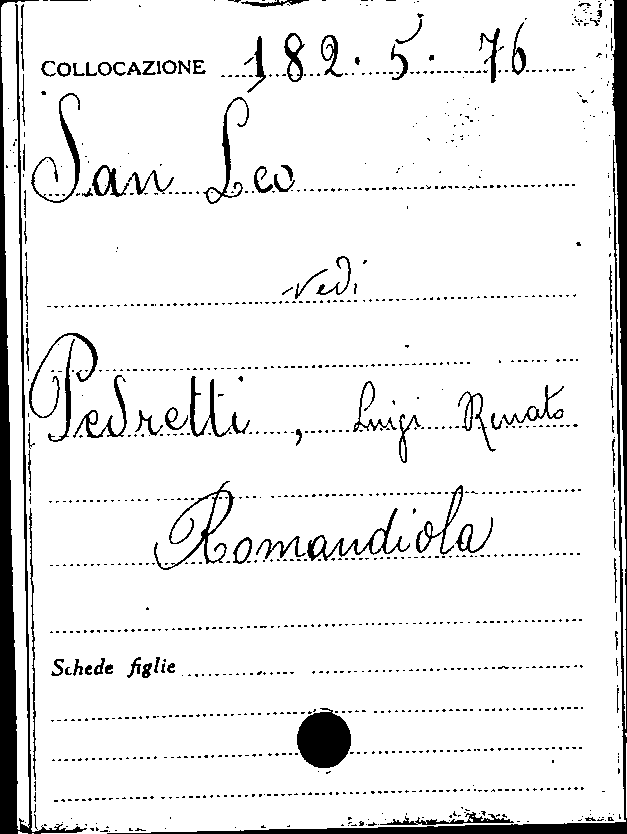 COLLOCAZIONE 182. 5. 76
San Leo
vedi
Pedretti, Luigi Renato
Romandiola
Schede figlie